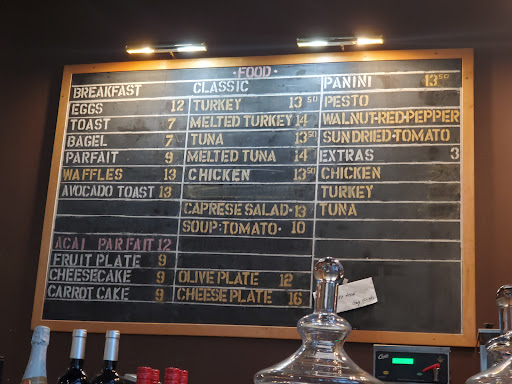 FOOD
BREAKFAST
EGGS 12
TOAST 7
BAGEL 7
PARFAIT 9
WAFFLES 13
AVOCADO TOAST 13
ACAI PARFAIT 12
FRUIT PLATE 9
CHEESECAKE 9
CARROT CAKE 9
CLASSIC
TURKEY 13 50
MELTED TURKEY 14
TUNA 13 50
MELTED TUNA 14
CHICKEN 13 50
CAPRESE SALAD • 13
SOUP: TOMATO • 10
OLIVE PLATE 12
CHEESE PLATE 16
PANINI 13 50
PESTO
WALNUT-RED-PEPPER
SUN DRIED-TOMATO
EXTRAS 3
CHICKEN
TURKEY
TUNA